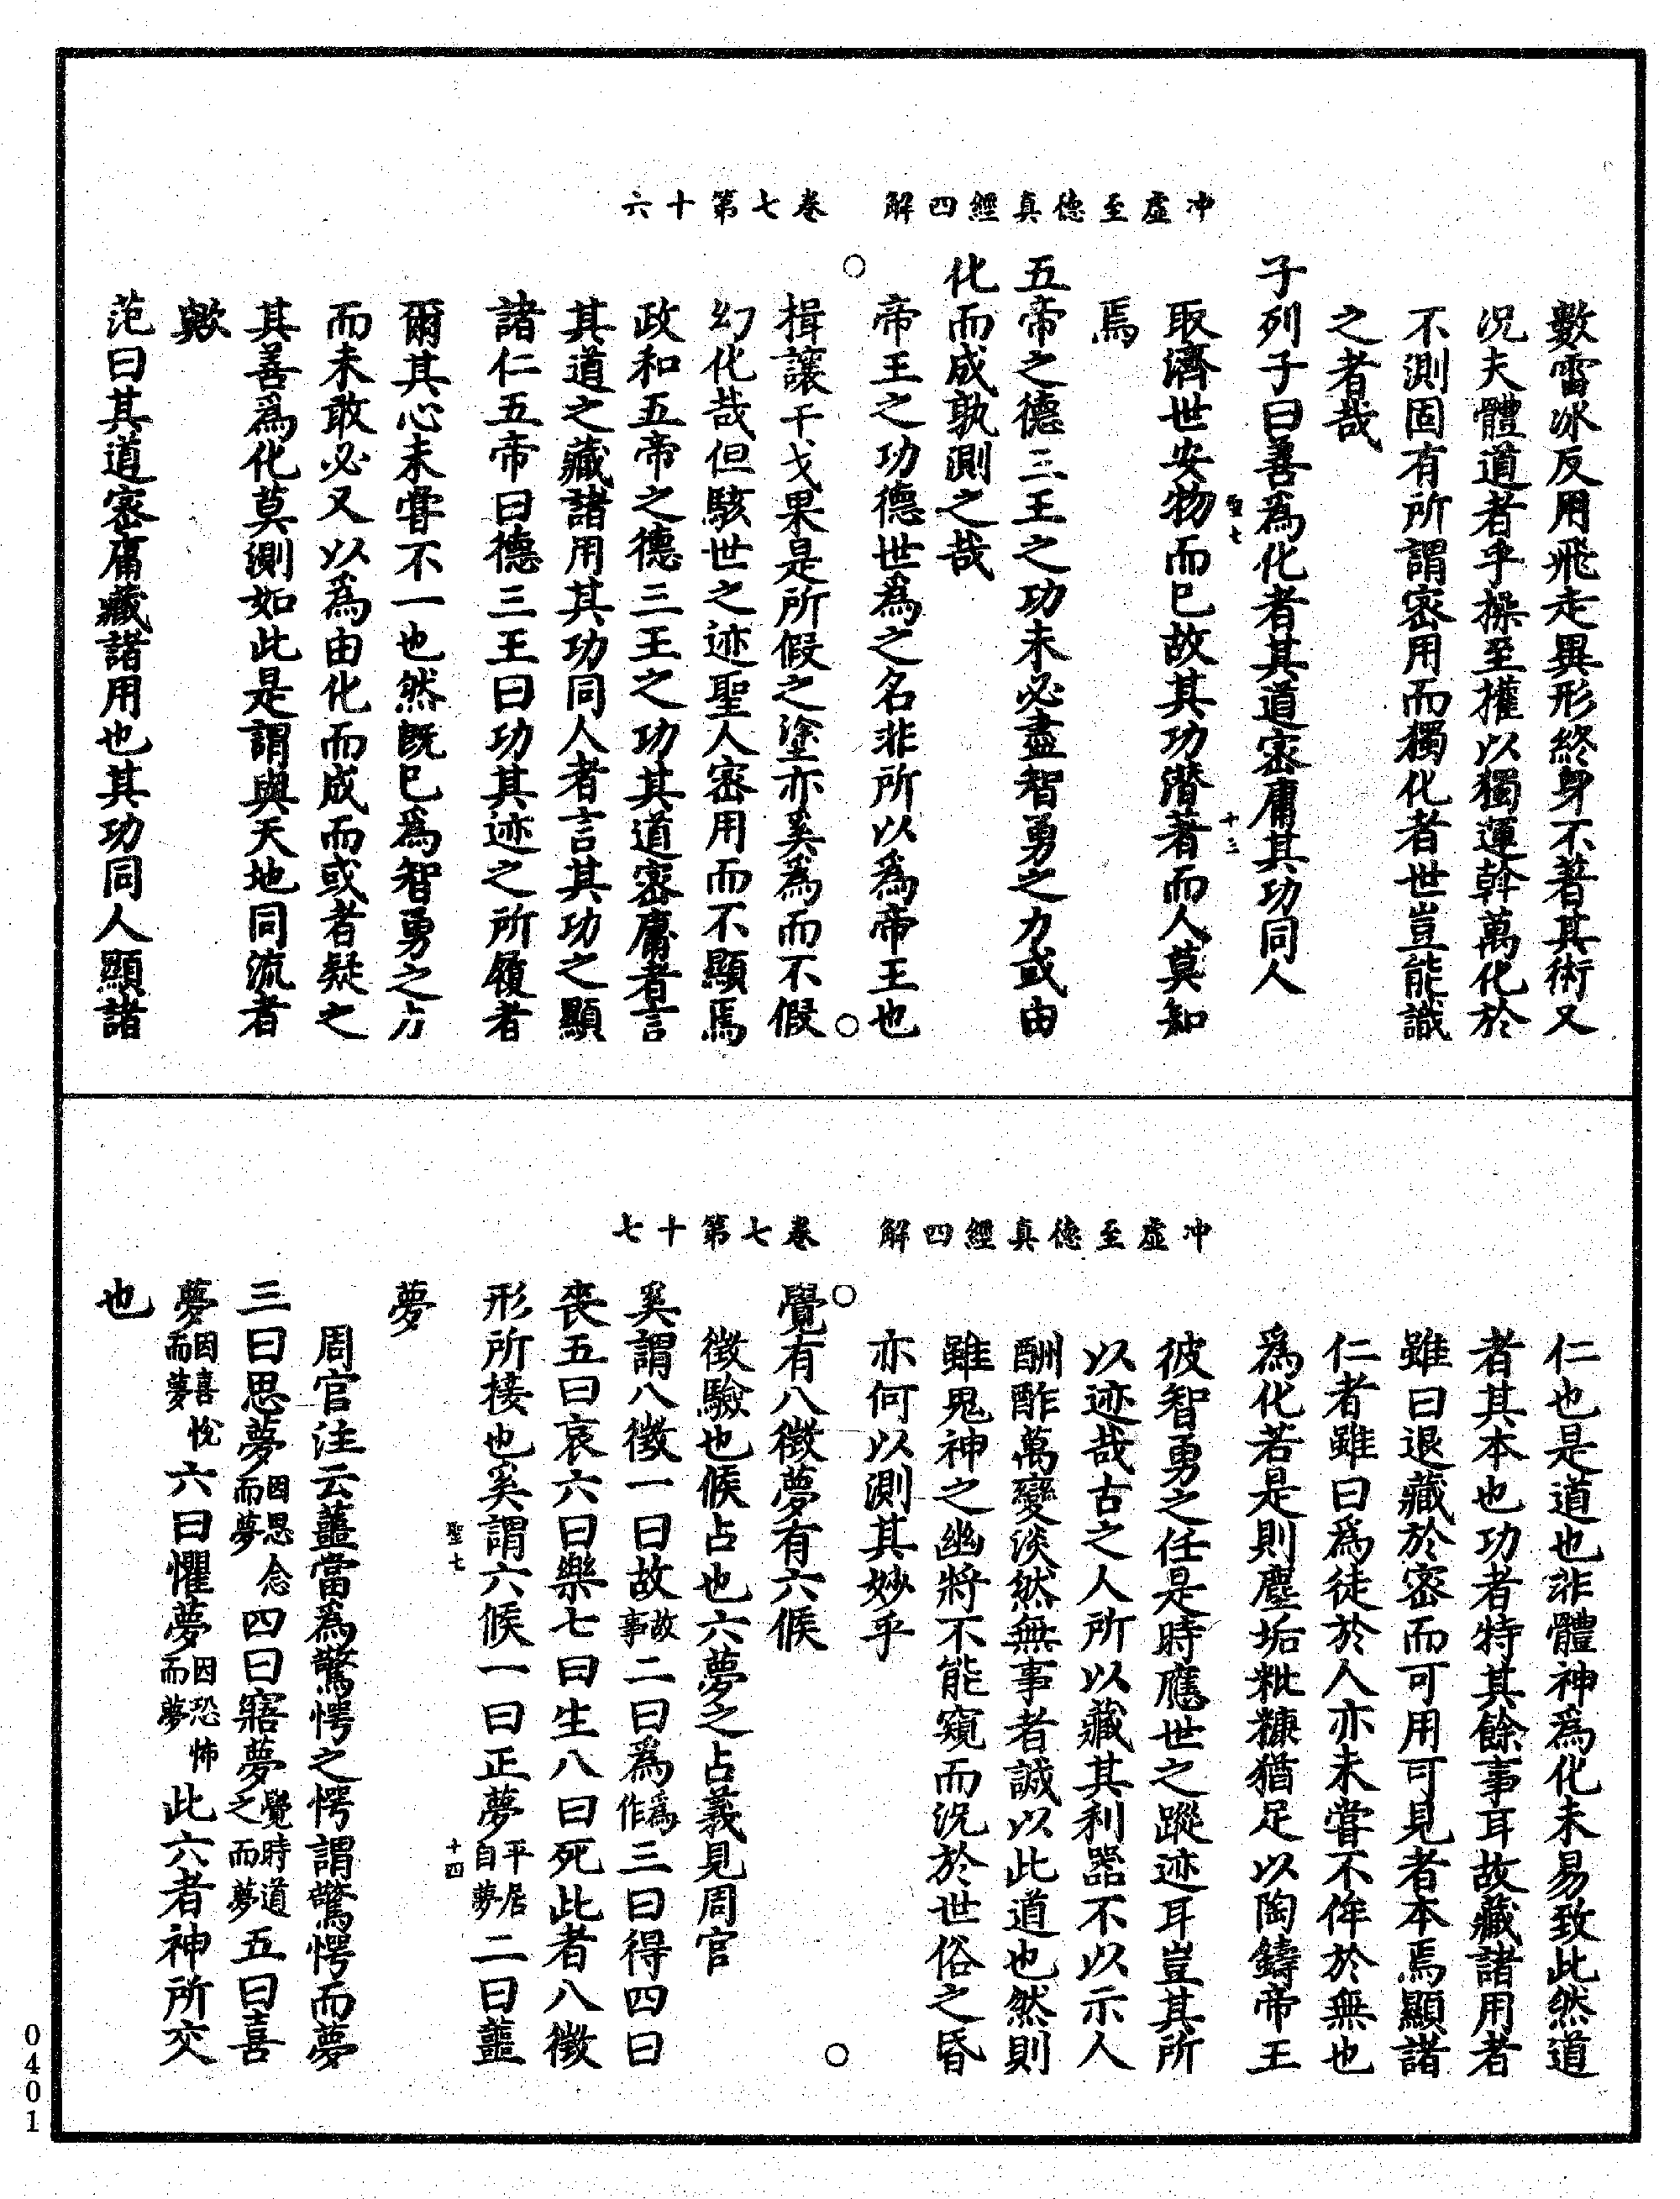 冲虛至德真經四解　卷七第十六
數雷冰反用飛走異形終身不著其術又
況夫體道者乎操至權以獨運斡萬化於
不測固有所謂密用而獨化者世豈能識
之者哉
子列子曰善爲化者其道密庸其功同人
聖七　十三
取濟世安物而已故其功潛著而人莫知
焉
五帝之德三王之功未必盡智勇之力或由
化而成孰測之哉
帝王之功德世爲之名非所以爲帝王也
○　○
揖讓干戈果是所假之塗亦奚爲而不假
幻化哉但駭世之迹聖人密用而不顯焉
政和五帝之德三王之功其道密庸者言
其道之藏諸用其功同人者言其功之顯
諸仁五帝曰德三王曰功其迹之所履者
爾其心未嘗不一也然既已爲智勇之力
而未敢必又以爲由化而成而或者疑之
其善爲化莫測如此是謂與天地同流者
歟
范曰其道密庸藏諸用也其功同人顯諸
冲虛至德真經四解　卷七第十七
仁也是道也非體神爲化未易致此然道
者其本也功者特其餘事耳故藏諸用者
雖曰退藏於密而可用可見者本焉顯諸
仁者雖曰爲徒於人亦未嘗不侔於無也
爲化若是則塵垢粃糠猶足以陶鑄帝王
彼智勇之任是時應世之蹤迹耳豈其所
以迹哉古之人所以藏其利器不以示人
酬酢萬變淡然無事者誠以此道也然則
雖鬼神之幽將不能窺而況於世俗之昏
亦何以測其妙乎
○　○
覺有八徵夢有六候
徵驗也候占也六夢之占義見周官
奚謂八徵一曰故故事二曰爲爲作三曰得四曰
喪五曰哀六曰樂七曰生八曰死此者八徵
形所接也奚謂六候一曰正夢平居自夢二曰蘁
聖七　十四
夢
周官注云蘁當爲驚愕之愕謂驚愕而夢
三曰思夢因思念而夢四曰寤夢覺時道之而夢五曰喜
夢因喜悅而夢六曰懼夢因恐怖而夢此六者神所交
也
0401